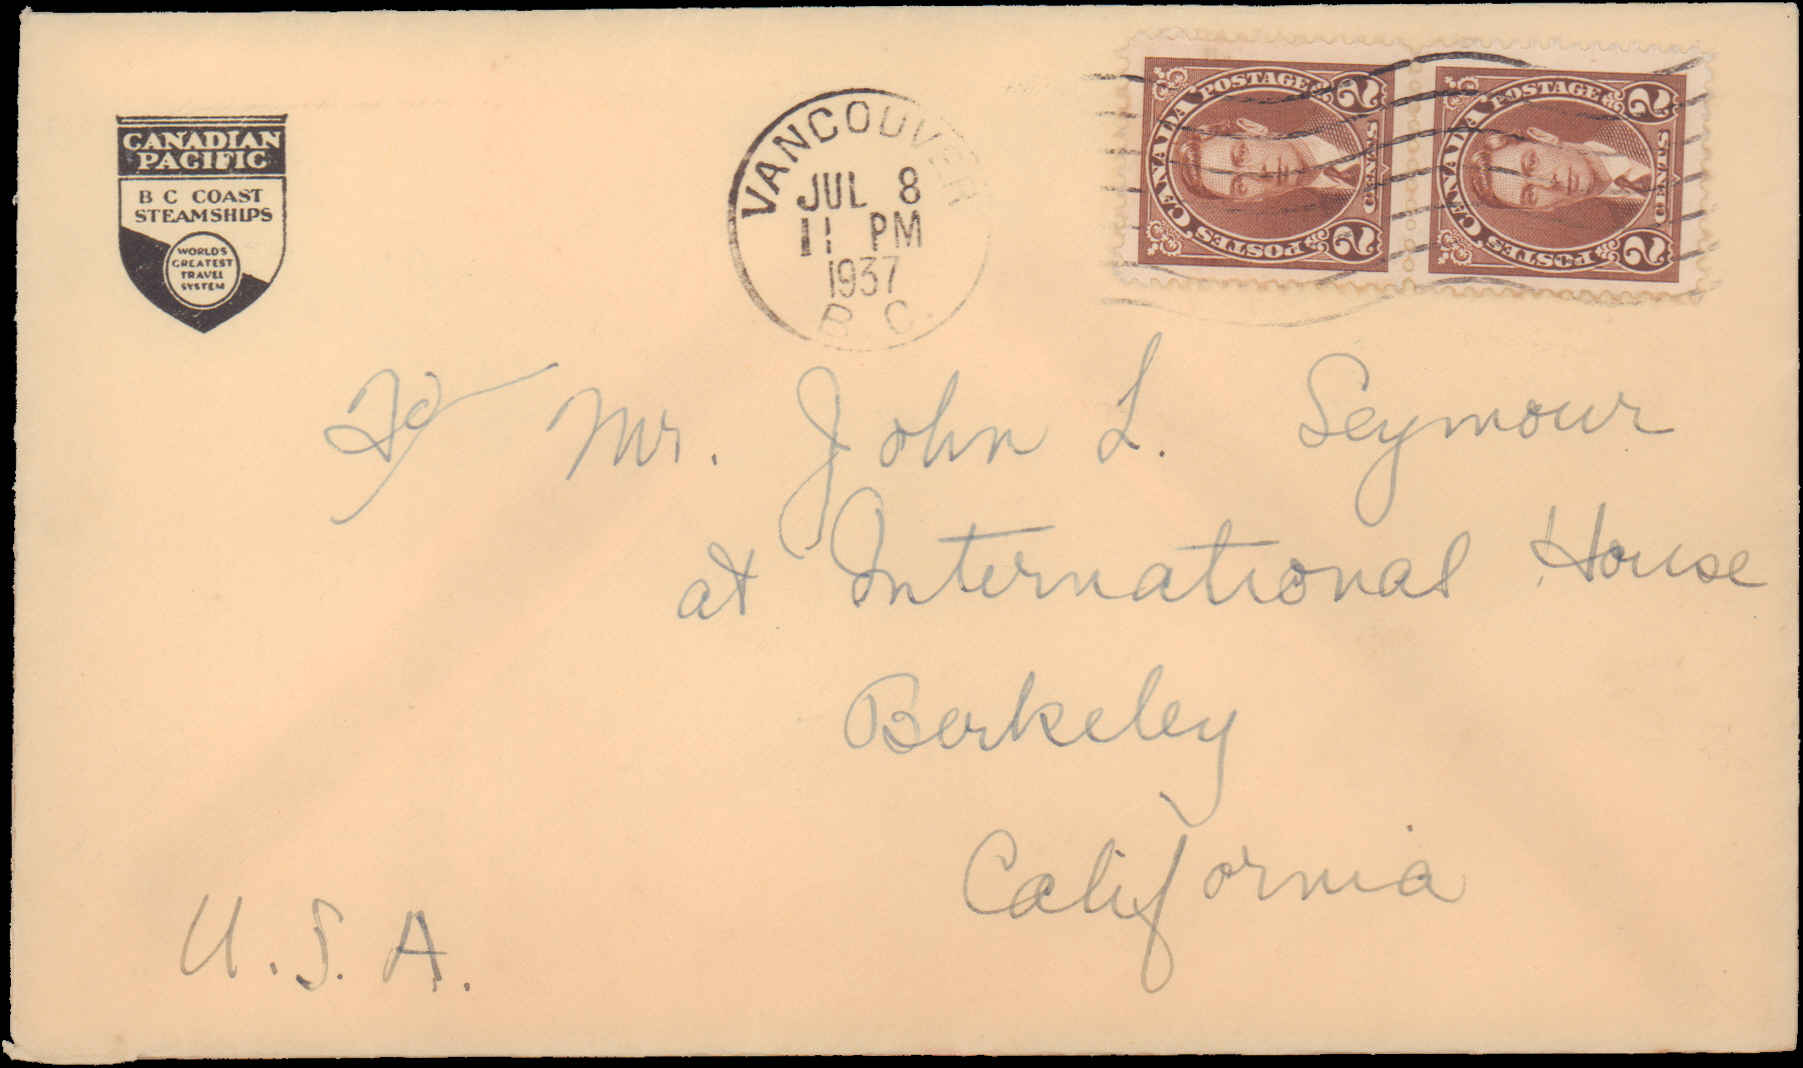 CANADIAN
PACIFIC
B C COAST
STEAMSHIPS
WORLD'S
GREATEST
TRAVEL
SYSTEM
VANCOUVER
JUL 8
11 PM
1937
B C.
CANADA POSTAGE
POSTES
2 CENTS 2
CANADA POSTAGE
POSTES
2 CENTS 2
To Mr. John L. Seymour
at International House
Berkeley
California
U.S.A.